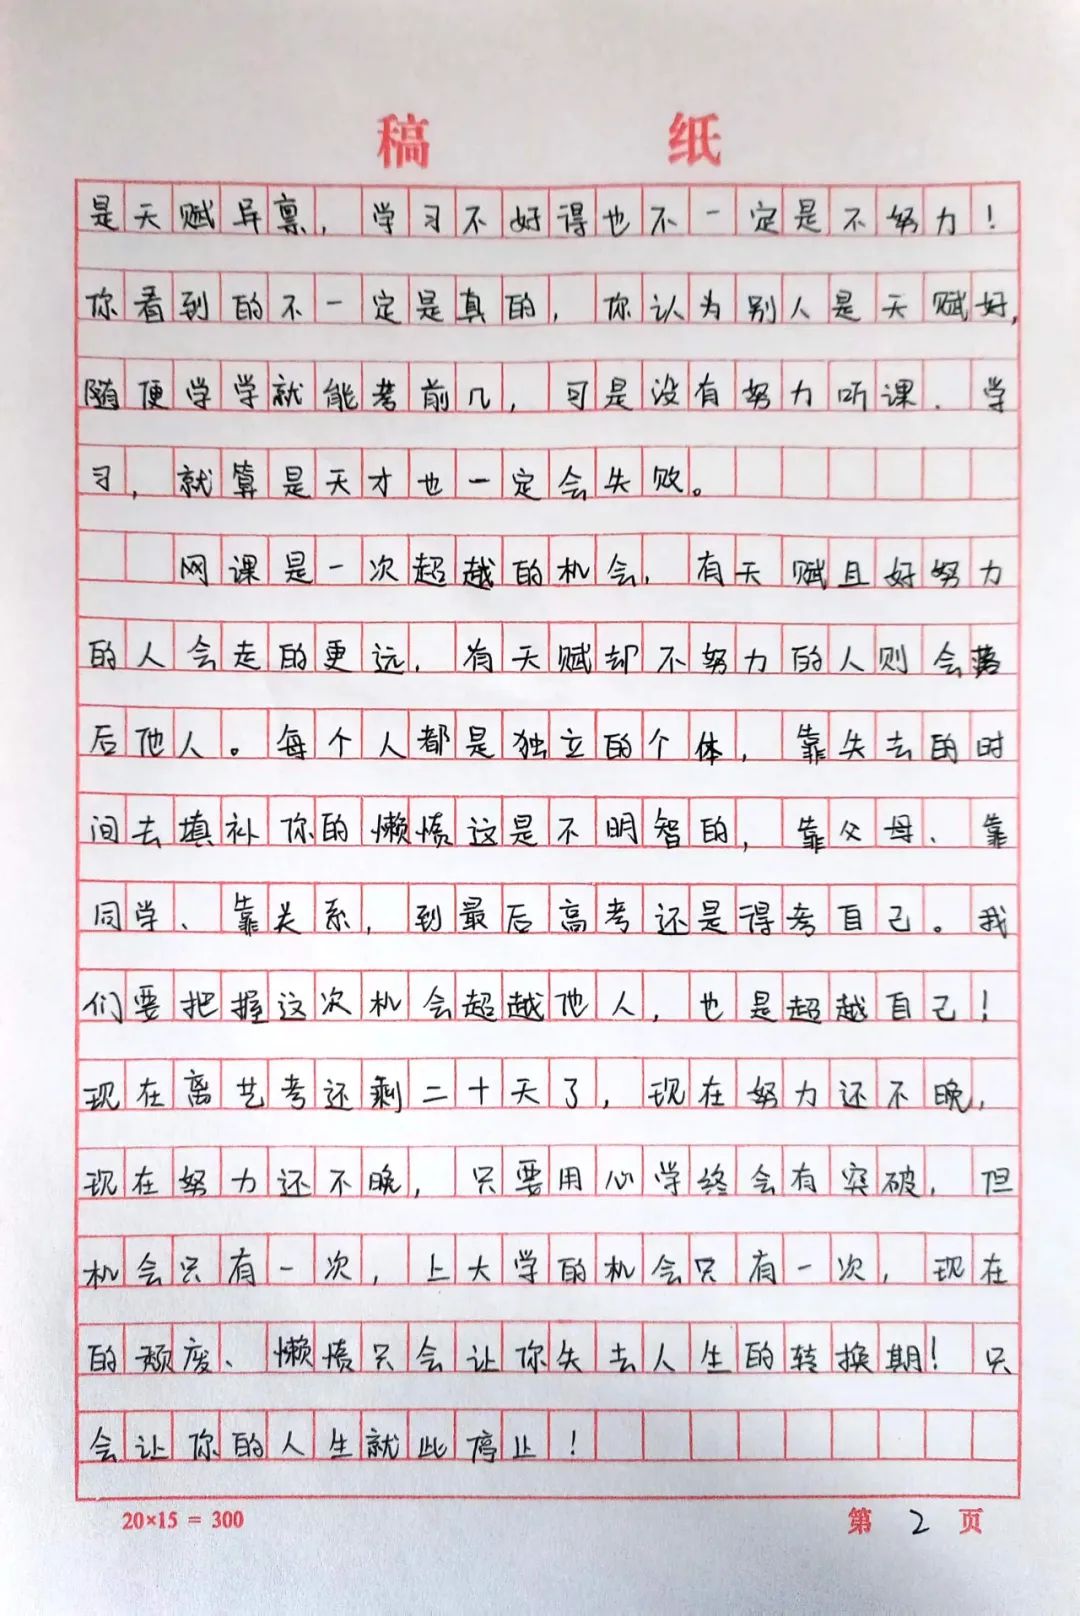 稿 纸
是天赋异禀，学习不好得也不一定是不努力！
你看到的不一定是真的，你认为别人是天赋好，
随便学学就能考前几，可是没有努力听课、学
习，就算是天才也一定会失败。
网课是一次超越的机会，有天赋且好努力
的人会走的更远，有天赋却不努力的人则会落
后他人。每个人都是独立的个体，靠失去的时
间去填补你的懒惰这是不明智的，靠父母、靠
同学、靠关系，到最后高考还是得考自己。我
们要把握这次机会超越他人，也是超越自己！
现在离艺考还剩二十天了，现在努力还不晚，
现在努力还不晚，只要用心学终会有突破，但
机会只有一次，上大学的机会只有一次，现在
的颓废、懒惰只会让你失去人生的转换期！只
会让你的人生就此停止！
20×15 = 300 第 2 页